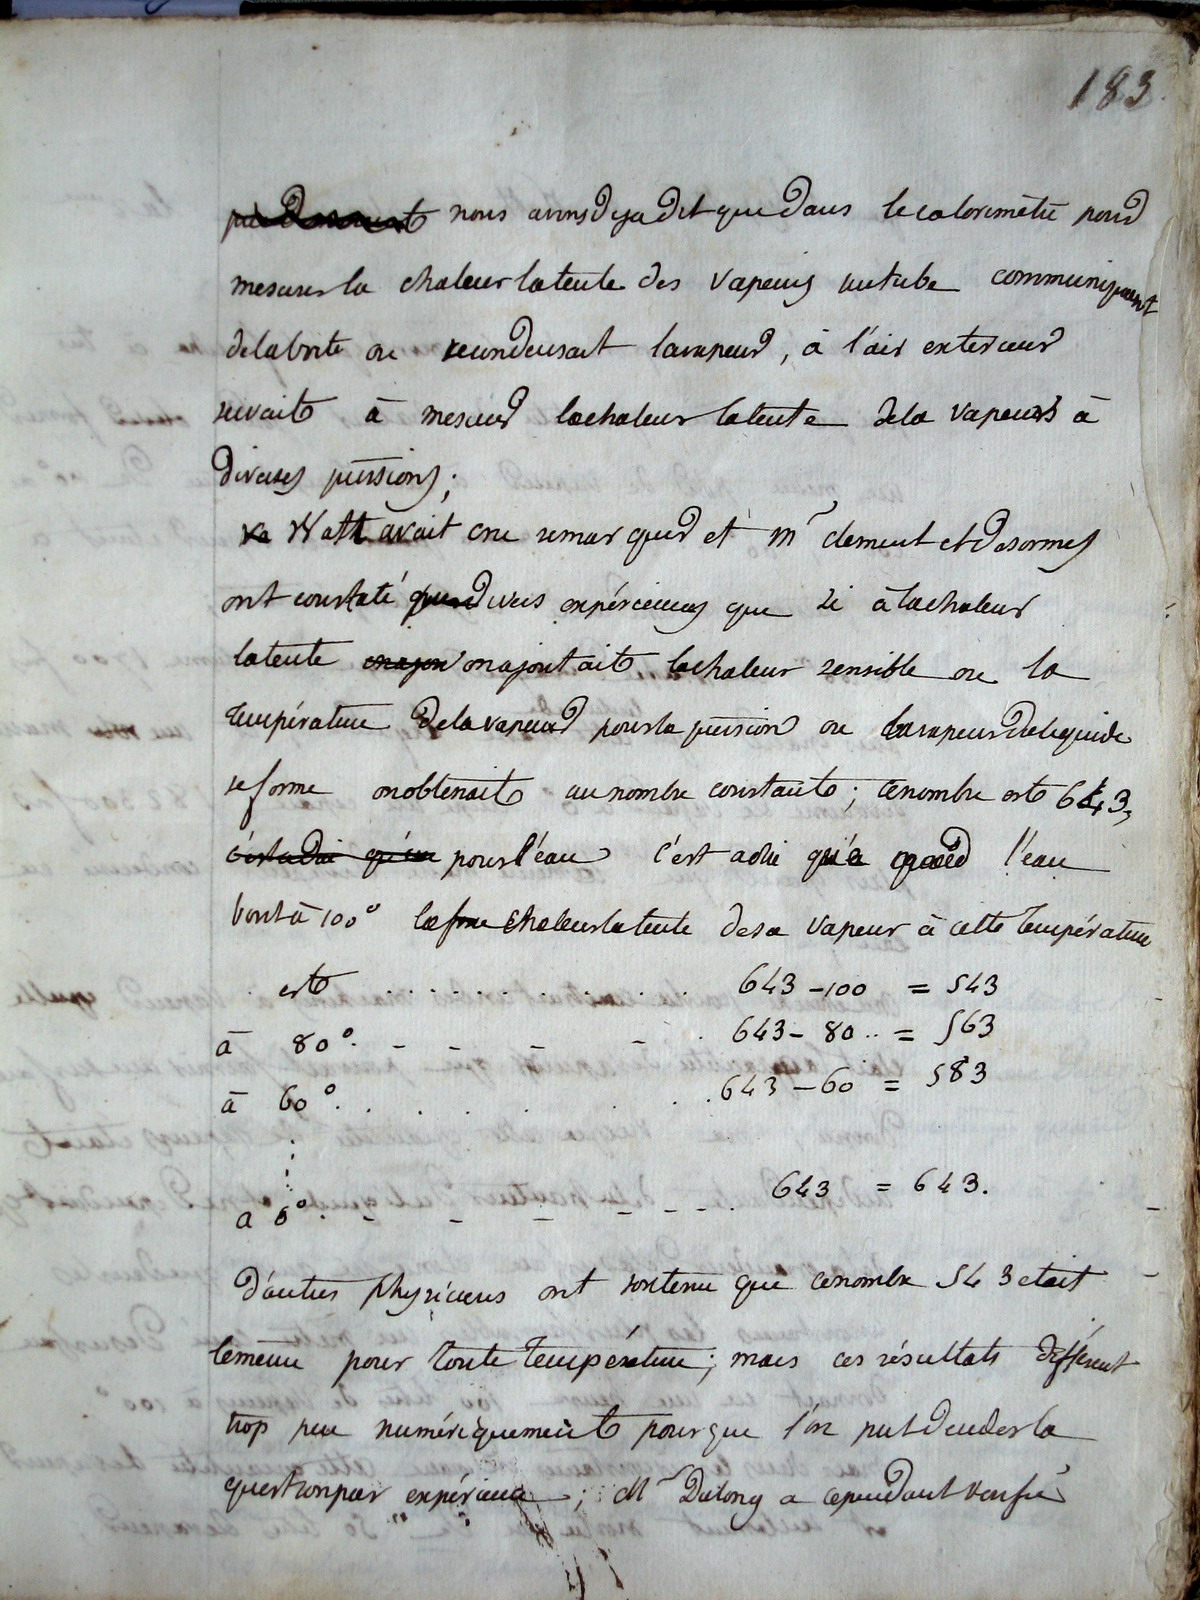 183
nous avons deja dit que dans le calorimètre pour
mesurer la chaleur latente des vapeurs un tube communiquant
de la boite ou se condensait la vapeur, à l'air exterieur
servait à mesurer la chaleur latente de la vapeurs à
diverses pressions;
Watt avait cru remarquer et Mr clement et Desormes
ont constaté par divers expériences que si à la chaleur
latente on ajoutait la chaleur sensible ou la
température de la vapeur pour la pression ou la vapeur de liquide
se forme on obtenait un nombre constant; ce nombre est 643,
c'est a dire qu'un pour l'eau c'est a dire qu'a quand l'eau
bout à 100° la chaleur latente de sa vapeur à cette température
est . . . . . . . . . . 643 - 100 = 543
à 80°. - - - - . 643 - 80 .. = 563
à 60°. . . . . . . . 643 - 60 = 583
a 0°. - - - - - - . 643 = 643.
D'autres physiciens ont soutenu que ce nombre 543 etait
le meme pour toute température; mais ces résultats diffèrent
trop peu numériquement pour que l'on put decider la
question par expérience; Mr Dulong a cependant verifié